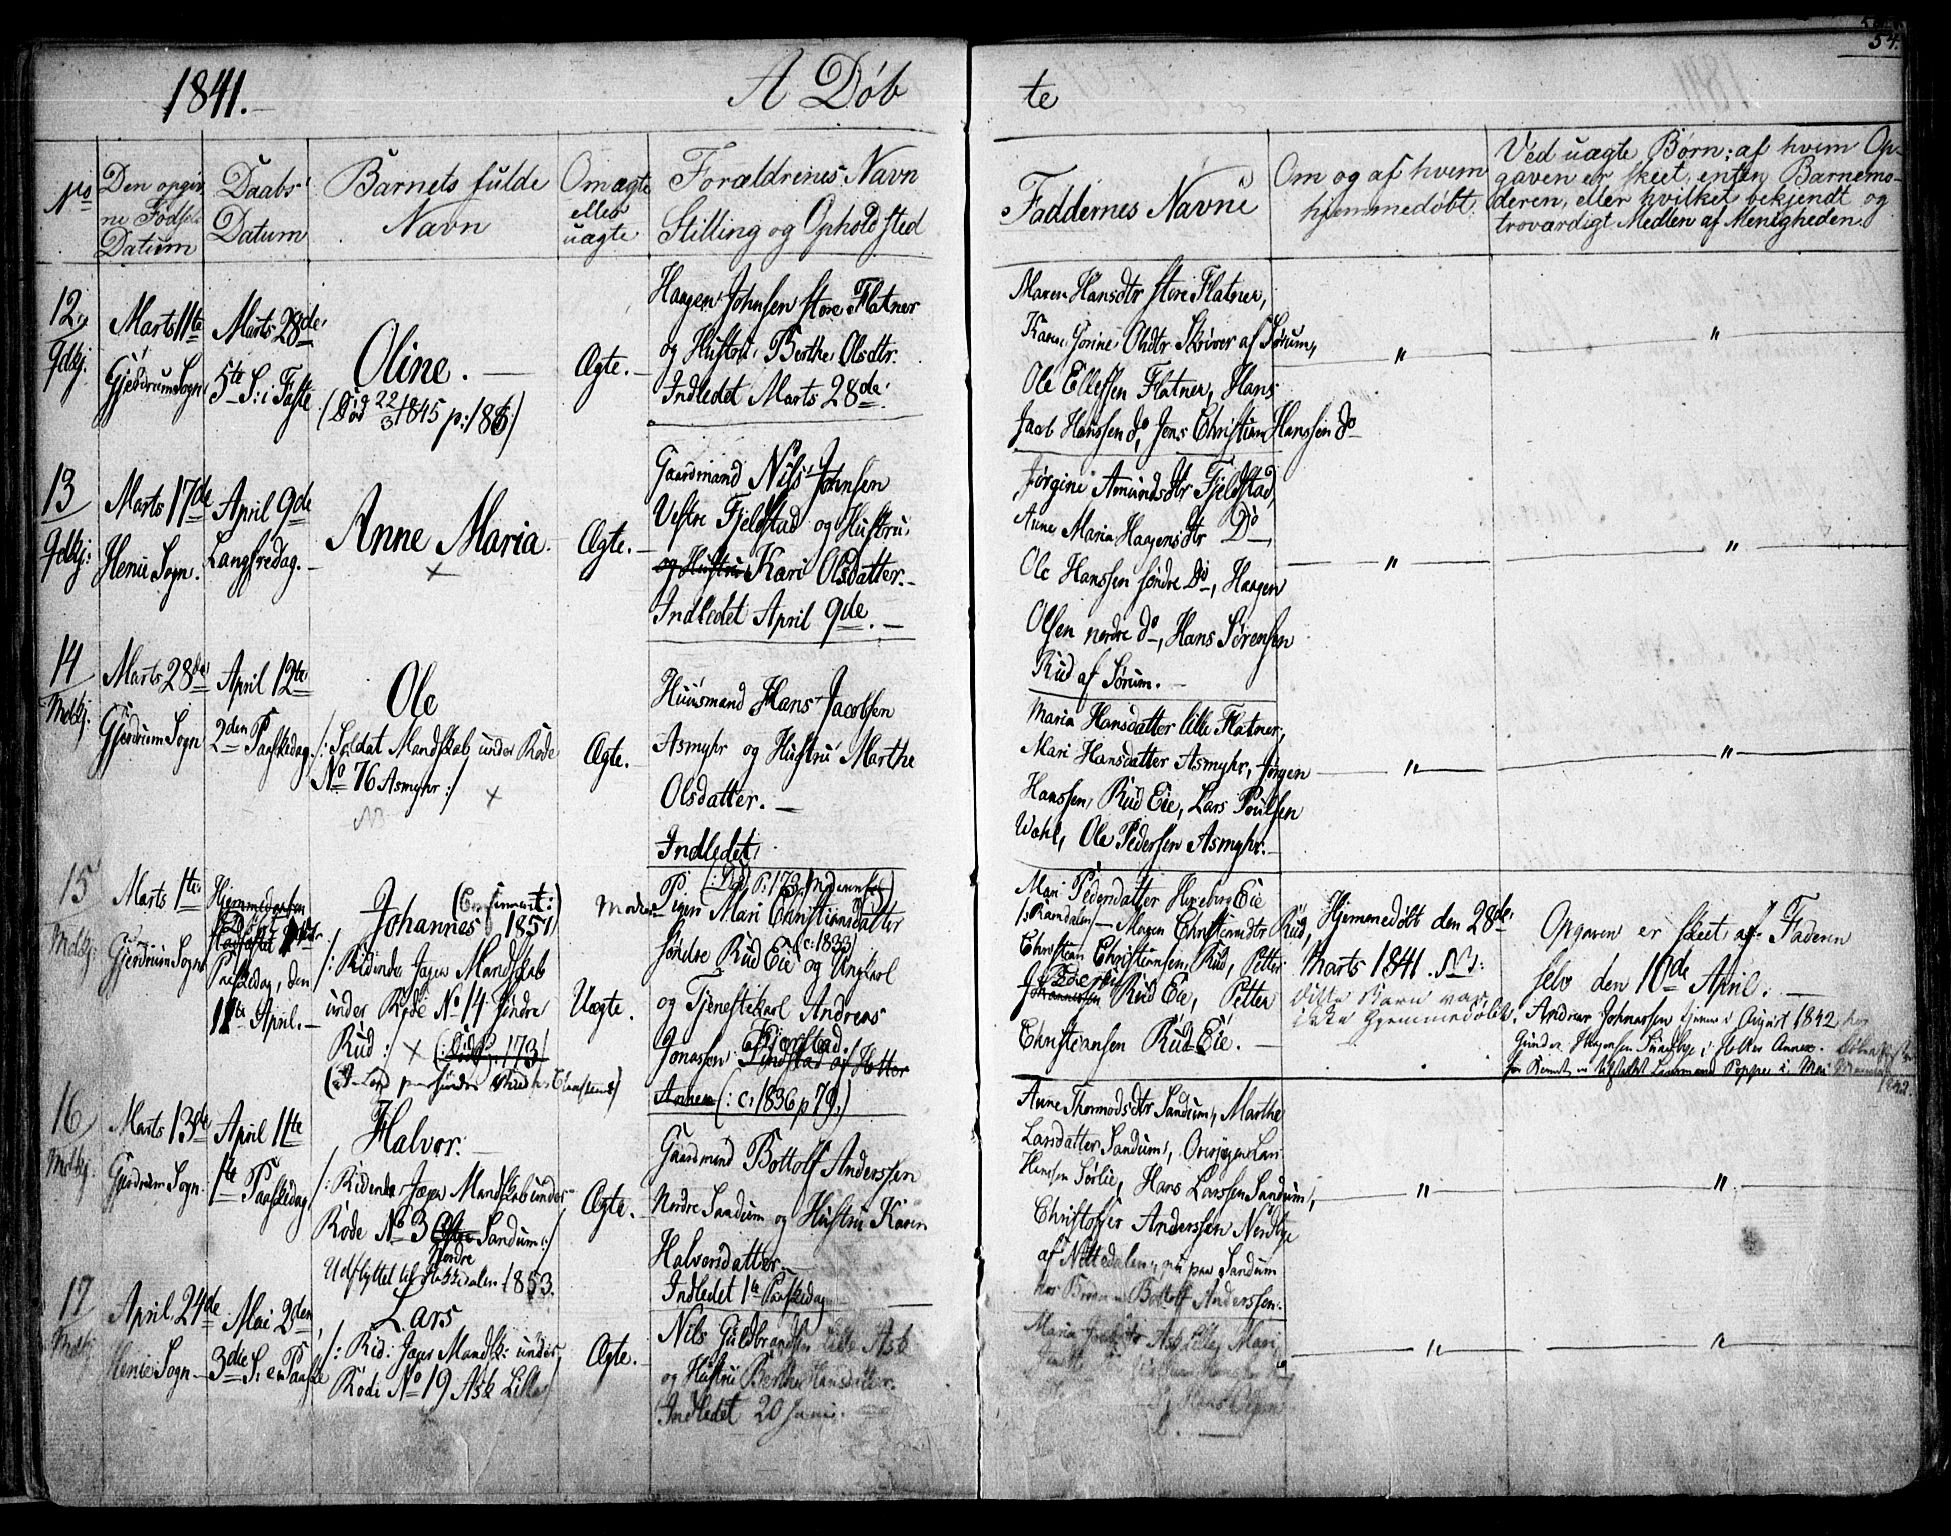 54.
1841.
A Døb
te
No
Den opgiv
ne Fødsels
Datum
Daabs
Datum
Barnets fulde
Navn
Om ægte
eller
uægte
Forældrenes Navn
Stilling og Opholdsted
Faddernes Navne
Om og af hvem
hjemmedøbt
Ved uægte Børn: af hvem Op-
gaven er skeet, enten Barnemo-
deren, eller hvilket bekjendt og
troværdigt Medlem af Menigheden.
12
qdkj.
Marts 11te
Gjerdrum Sogn
Marts 28de
5te S: i Faste
Oline.
(Død 22/3 1845 p: 186)
Ægte.
Haagen Johnsen store Flatner
og Hustru Berthe Olsdtr.
Indledet Marts 28de
Maren Hansdtr store Flatner,
Karen Gorine Olsdtr Skriver af Sørum,
Ole Ellefsen Flatner, Hans
Jacob Hanssen do, Jens Christian Hanssen do
"
"
13
qdkj:
Marts 17de
Henie Sogn.
April 9de
Langfredag.
Anne Maria.
×
Ægte.
Gaardmand Nils Johnsen
Vestre Fjeldstad og Hustru
og Hustru Kari Olsdatter.
Indledet April 9de.
Jørgine Amundsdtr Fjeldstad,
Anne Maria Haagensdtr Do,
Ole Hanssen søndre Do, Haagen
Olsen nordre do, Hans Sørensen
Rud af Sørum.
"
"
14
Mdkj.
Marts 28de
Gjerdrum Sogn
April 12te
2den Paaskedag
Ole
/: Soldat Mandskab under Rode
No 76 Asmyhr :/
×
NB
Ægte.
Huusmand Hans Jacobsen
Asmyhr og Hustru Marthe
Olsdatter.
Indledet
Maria Hansdatter lille Flatner,
Mari Hansdatter Asmyhr, Jørgen
Hanssen, Rud Eie, Lars Poulsen
Wahl, Ole Pedersen Asmyhr.
"
"
15
Mdkj:
Marts 1te
Gjerdrum Sogn
Hjemmedøbt
Paaskedag, den
11te April.
Johannes (Confirmert:) 1857
/: Ridende Jæger Mandskab
under Rode No 14 Søndre
Rud :/ × (: Død p. 173)
Uægte.
(: Død P: 179 Moderen)
Pigen Mari Christiansdatter
søndre Rud Eie (c: 1833) og Ungkarl
og Tjenestekarl Andreas
Jonassen Bjørstad.
Lindstad af Holter
Annex (: c: 1836 p 79.)
Mari Pedersdatter Herreberg Eie
/: Ramdalen/ Maren Christiansdtr Rud,
Christian Christiansen, Rud, Petter
Johannessen Rud Eie, Petter
Christiansen Rud Eie.
Hjemmedøbt den 28de
Marts 1841. NB:
dette Barn var
ikke hjemmedøbt.
Opgaven er skeet af Faderen
selv den 10de April.
Andreas Johnassen tjener i August 1842 hos
1842.
16
Mdkj.
Marts 13de
Gjerdrum Sogn
April 11te
1te Paaskedag
Halvor.
/: Ridende Jæger Mandskab under
Rode No 3 Østre Sandum :/
Nordre
Udflyttet til Hakkedalen 1853.
Ægte.
Gaardmand Bottolf Anderssen
Nordre Sandum og Hustru Karen
Halvorsdatter.
Indledet 1te Paaskedag
Anne Thormodsdtr Sandum, Marthe
Larsdatter Sandum,
Hanssen Sørlie, Hans Larssen Sandum,
Christoffer Anderssen Nordbye
af Nittedalen, nu paa Sandum
hos Broderen Bottolf Anderssen.
"
"
17
Mdkj
April 24de
Henie Sogn
Mai 2den
3die S. e. Paaske
Lars
/: Rid: Jæger Mandsk: under
Rode No 19 Ask Lille/
Ægte.
Nils Guldbrandsen Lille Ask
og Hustru Berthe Hansdatter.
Indledet 20 Juni.
Maria Ask Lille, Mari
Hans Olsen
"
"